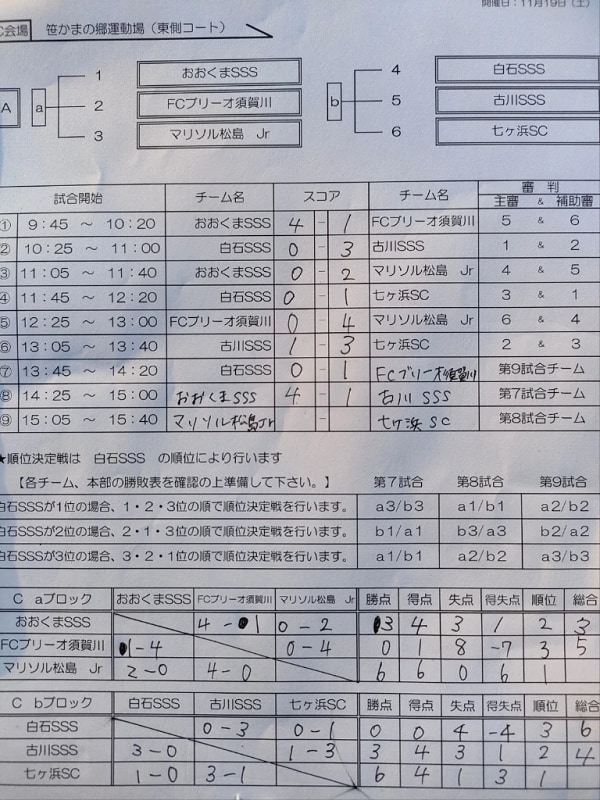 C会場 笹かまの郷運動場（東側コート） 開催日：11月19日（土）
A a 1 おおくまSSS b 4 白石SSS
2 FCプリーオ須賀川 5 古川SSS
3 マリソル松島 Jr 6 七ヶ浜SC
試合開始 チーム名 スコア チーム名 審判
主審 & 補助審
① 9:45 ～ 10:20 おおくまSSS 4 - 1 FCプリーオ須賀川 5 & 6
② 10:25 ～ 11:00 白石SSS 0 - 3 古川SSS 1 & 2
③ 11:05 ～ 11:40 おおくまSSS 0 - 2 マリソル松島 Jr 4 & 5
④ 11:45 ～ 12:20 白石SSS 0 - 1 七ヶ浜SC 3 & 1
⑤ 12:25 ～ 13:00 FCプリーオ須賀川 0 - 4 マリソル松島 Jr 6 & 4
⑥ 13:05 ～ 13:40 古川SSS 1 - 3 七ヶ浜SC 2 & 3
⑦ 13:45 ～ 14:20 白石SSS 0 - 1 FCプリーオ須賀川 第9試合チーム
⑧ 14:25 ～ 15:00 おおくまSSS 4 - 1 古川 SSS 第7試合チーム
⑨ 15:05 ～ 15:40 マリソル松島Jr - 七ヶ浜 SC 第8試合チーム
★順位決定戦は 白石SSS の順位により行います
【各チーム、本部の勝敗表を確認の上準備して下さい。】 第7試合 第8試合 第9試合
白石SSSが1位の場合、1・2・3位の順で順位決定戦を行います。 a3/b3 a1/b1 a2/b2
白石SSSが2位の場合、2・1・3位の順で順位決定戦を行います。 b1/a1 b3/a3 b2/a2
白石SSSが3位の場合、3・2・1位の順で順位決定戦を行います。 a1/b1 a2/b2 a3/b3
C aブロック おおくまSSS FCプリーオ須賀川 マリソル松島 Jr 勝点 得点 失点 得失点 順位 総合
おおくまSSS 4-1 0-2 3 4 3 1 2 3
FCプリーオ須賀川 1-4 0-4 0 1 8 -7 3 5
マリソル松島 Jr 2-0 4-0 6 6 0 6 1
C bブロック 白石SSS 古川SSS 七ヶ浜SC 勝点 得点 失点 得失点 順位 総合
白石SSS 0-3 0-1 0 0 4 -4 3 6
古川SSS 3-0 1-3 3 4 3 1 2 4
七ヶ浜SC 1-0 3-1 6 4 1 3 1